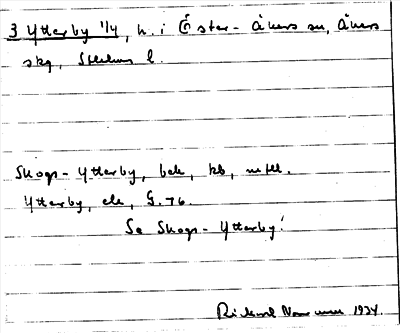 3 Ytterby 1/4, h. i Öster-Åkers sn, Åkers
skg, Sthlms l.
Skogs-Ytterby, bek, kb, m fl.
Ytterby, ek, G. 76.
Se Skogs-Ytterby!
Rickard 1934.